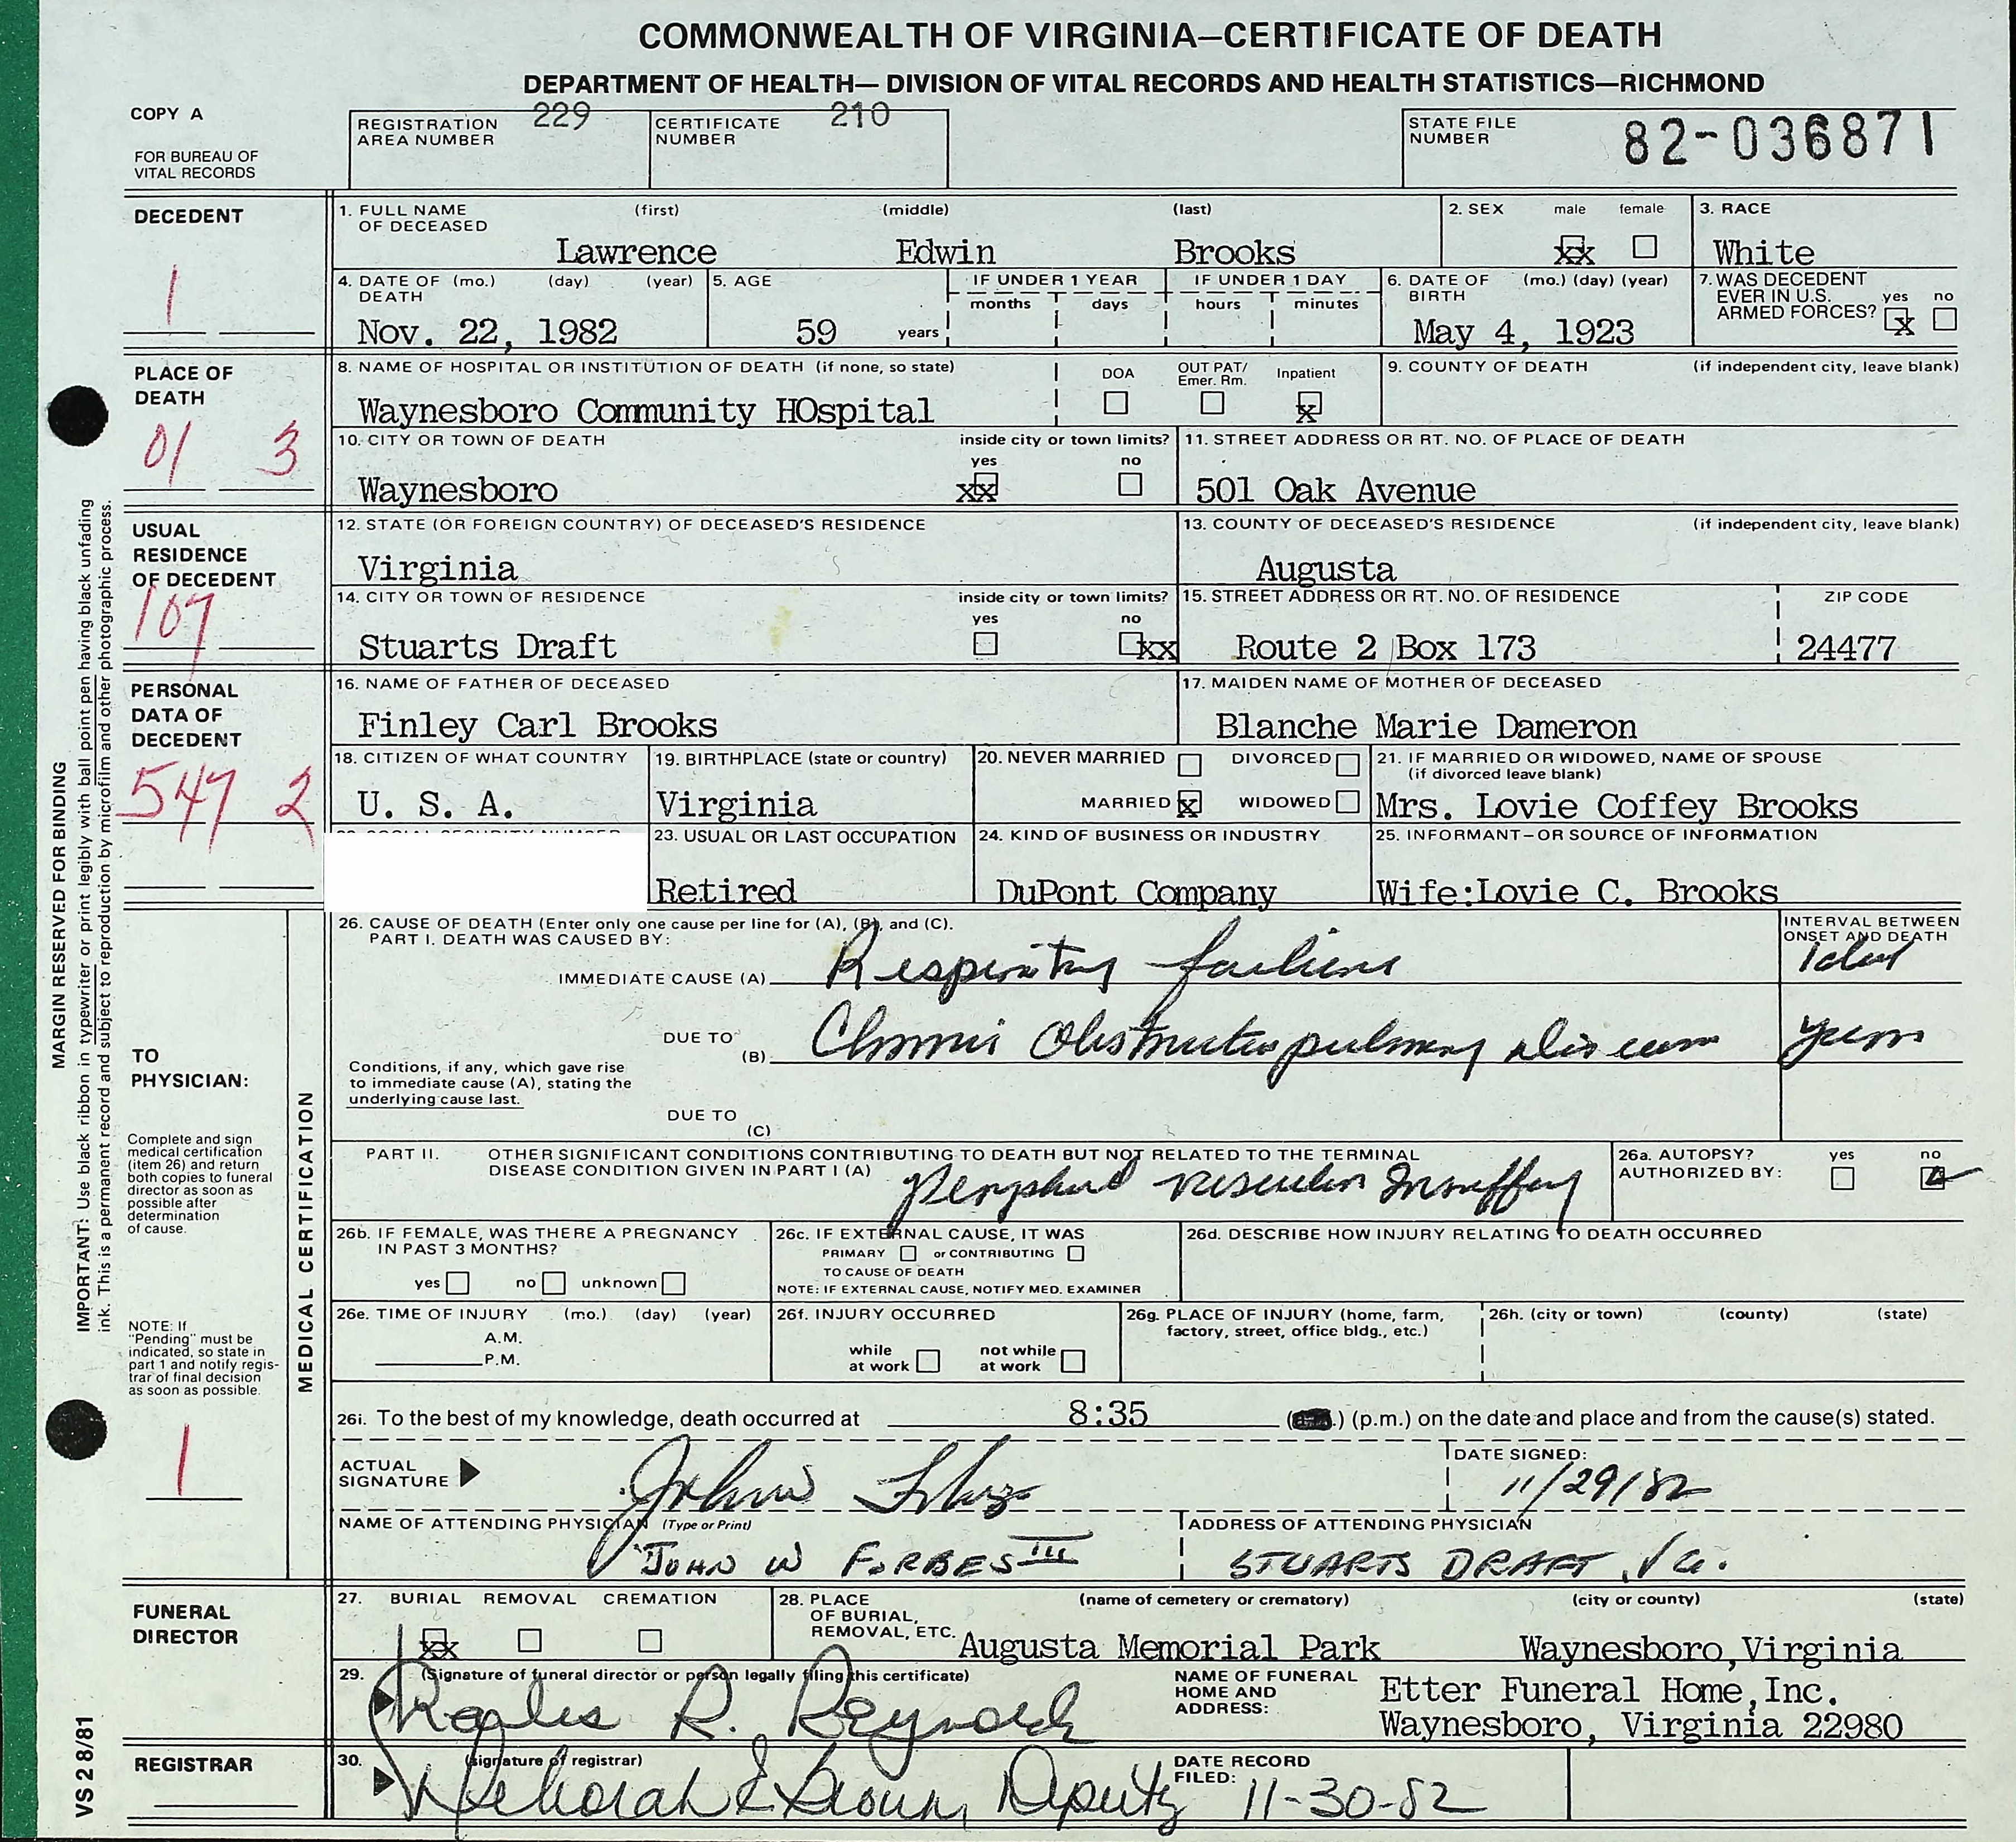 COMMONWEALTH OF VIRGINIA—CERTIFICATE OF DEATH
DEPARTMENT OF HEALTH— DIVISION OF VITAL RECORDS AND HEALTH STATISTICS—RICHMOND
COPY A
FOR BUREAU OF
VITAL RECORDS
REGISTRATION
AREA NUMBER 229
CERTIFICATE
NUMBER 210
STATE FILE
NUMBER 82-036871
DECEDENT
1
1. FULL NAME (first) (middle) (last)
OF DECEASED
Lawrence Edwin Brooks
2. SEX male female
xx
3. RACE
White
4. DATE OF (mo.) (day) (year)
DEATH
Nov. 22, 1982
5. AGE
59 years
IF UNDER 1 YEAR
months days
IF UNDER 1 DAY
hours minutes
6. DATE OF (mo.) (day) (year)
BIRTH
May 4, 1923
7. WAS DECEDENT
EVER IN U.S. yes no
ARMED FORCES? x
PLACE OF
DEATH
01 3
8. NAME OF HOSPITAL OR INSTITUTION OF DEATH (if none, so state)
Waynesboro Community HOspital
DOA OUT PAT/ Inpatient
Emer. Rm.
x
9. COUNTY OF DEATH (if independent city, leave blank)
10. CITY OR TOWN OF DEATH inside city or town limits?
yes no
Waynesboro xx
11. STREET ADDRESS OR RT. NO. OF PLACE OF DEATH
501 Oak Avenue
USUAL
RESIDENCE
OF DECEDENT
107
12. STATE (OR FOREIGN COUNTRY) OF DECEASED'S RESIDENCE
Virginia
13. COUNTY OF DECEASED'S RESIDENCE (if independent city, leave blank)
Augusta
14. CITY OR TOWN OF RESIDENCE inside city or town limits?
yes no
Stuarts Draft xx
15. STREET ADDRESS OR RT. NO. OF RESIDENCE ZIP CODE
Route 2 Box 173 24477
PERSONAL
DATA OF
DECEDENT
547 2
16. NAME OF FATHER OF DECEASED
Finley Carl Brooks
17. MAIDEN NAME OF MOTHER OF DECEASED
Blanche Marie Dameron
18. CITIZEN OF WHAT COUNTRY
U. S. A.
19. BIRTHPLACE (state or country)
Virginia
20. NEVER MARRIED DIVORCED
MARRIED x WIDOWED
21. IF MARRIED OR WIDOWED, NAME OF SPOUSE
(if divorced leave blank)
Mrs. Lovie Coffey Brooks
23. USUAL OR LAST OCCUPATION
Retired
24. KIND OF BUSINESS OR INDUSTRY
DuPont Company
25. INFORMANT—OR SOURCE OF INFORMATION
Wife:Lovie C. Brooks
MARGIN RESERVED FOR BINDING
IMPORTANT: Use black ribbon in typewriter or print legibly with ball point pen having black unfading
ink. This is a permanent record and subject to reproduction by microfilm and other photographic process.
TO
PHYSICIAN:
Complete and sign
medical certification
(item 26) and return
both copies to funeral
director as soon as
possible after
determination
of cause.
NOTE: If
"Pending" must be
indicated, so state in
part 1 and notify regis-
trar of final decision
as soon as possible.
1
MEDICAL CERTIFICATION
26. CAUSE OF DEATH (Enter only one cause per line for (A), (B), and (C).
PART I. DEATH WAS CAUSED BY:
INTERVAL BETWEEN
ONSET AND DEATH
IMMEDIATE CAUSE (A) Respiratory failure
DUE TO
(B) Chronic Obstructive pulmonary disease years
Conditions, if any, which gave rise
to immediate cause (A), stating the
underlying cause last.
DUE TO
(C)
PART II. OTHER SIGNIFICANT CONDITIONS CONTRIBUTING TO DEATH BUT NOT RELATED TO THE TERMINAL
DISEASE CONDITION GIVEN IN PART I (A)
Peripheral vascular
26a. AUTOPSY? yes no
AUTHORIZED BY:
26b. IF FEMALE, WAS THERE A PREGNANCY
IN PAST 3 MONTHS?
yes no unknown
26c. IF EXTERNAL CAUSE, IT WAS
PRIMARY or CONTRIBUTING
TO CAUSE OF DEATH
NOTE: IF EXTERNAL CAUSE, NOTIFY MED. EXAMINER
26d. DESCRIBE HOW INJURY RELATING TO DEATH OCCURRED
26e. TIME OF INJURY (mo.) (day) (year)
A.M.
P.M.
26f. INJURY OCCURRED
while not while
at work at work
26g. PLACE OF INJURY (home, farm,
factory, street, office bldg., etc.)
26h. (city or town) (county) (state)
26i. To the best of my knowledge, death occurred at 8:35 (p.m.) on the date and place and from the cause(s) stated.
ACTUAL
SIGNATURE
DATE SIGNED:
11/29/82
NAME OF ATTENDING PHYSICIAN (Type or Print)
JOHN W FORBES III
ADDRESS OF ATTENDING PHYSICIAN
STUARTS DRAFT, VA.
FUNERAL
DIRECTOR
27. BURIAL REMOVAL CREMATION
xx
28. PLACE (name of cemetery or crematory) (city or county) (state)
OF BURIAL,
REMOVAL, ETC.
Augusta Memorial Park Waynesboro, Virginia
29. (Signature of funeral director or person legally filing this certificate)
Charles R. Reynolds
NAME OF FUNERAL
HOME AND
ADDRESS:
Etter Funeral Home, Inc.
Waynesboro, Virginia 22980
REGISTRAR
30. (signature of registrar)
Deborah Deputy
DATE RECORD
FILED: 11-30-82
VS 2 8/81